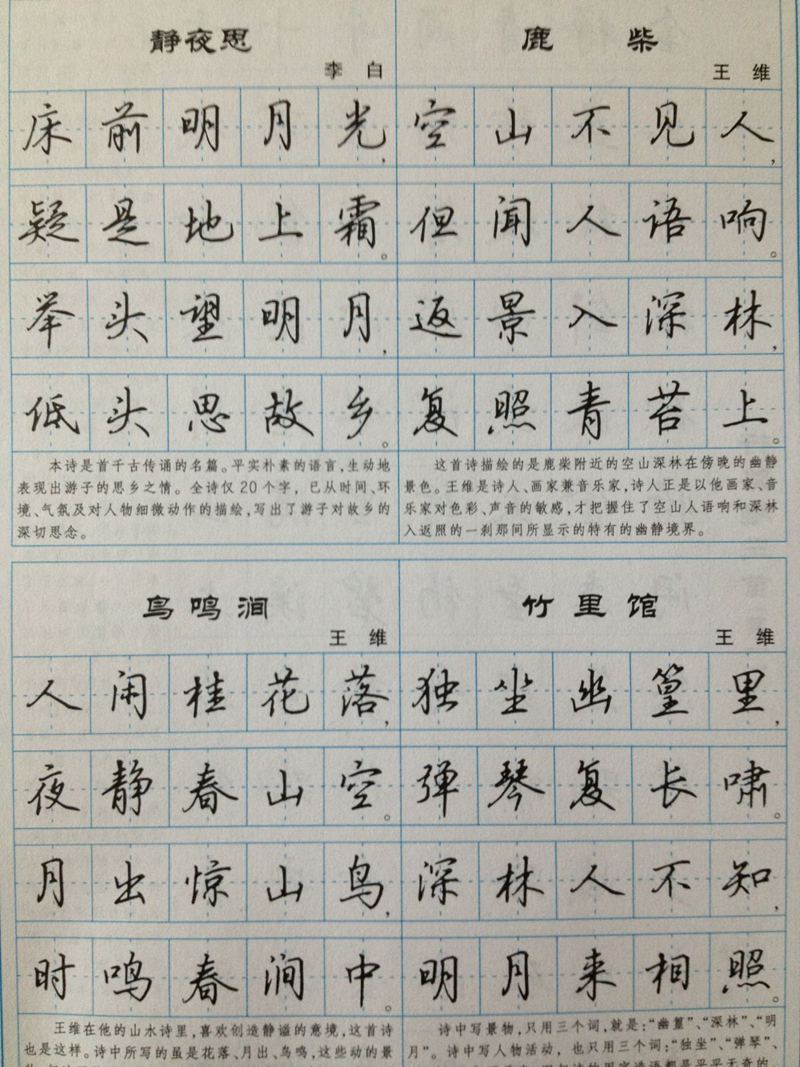 静夜思
李白
床前明月光，
疑是地上霜。
举头望明月，
低头思故乡。
本诗是首千古传诵的名篇。平实朴素的语言，生动地
表现出游子的思乡之情。全诗仅20个字，已从时间、环
境、气氛及对人物细微动作的描绘，写出了游子对故乡的
深切思念。
鹿柴
王维
空山不见人，
但闻人语响。
返景入深林，
复照青苔上。
这首诗描绘的是鹿柴附近的空山深林在傍晚的幽静
景色。王维是诗人、画家兼音乐家，诗人正是以他画家、音
乐家对色彩、声音的敏感，才把握住了空山人语响和深林
入返照的一刹那间所显示的特有的幽静境界。
鸟鸣涧
王维
人闲桂花落，
夜静春山空。
月出惊山鸟，
时鸣春涧中。
王维在他的山水诗里，喜欢创造静谧的意境，这首诗
也是这样。诗中所写的虽是花落、月出、鸟鸣，这些动的景
竹里馆
王维
独坐幽篁里，
弹琴复长啸。
深林人不知，
明月来相照。
诗中写景物，只用三个词，就是：“幽篁”、“深林”、“明
月”。诗中写人物活动，也只用三个词：“独坐”、“弹琴”、